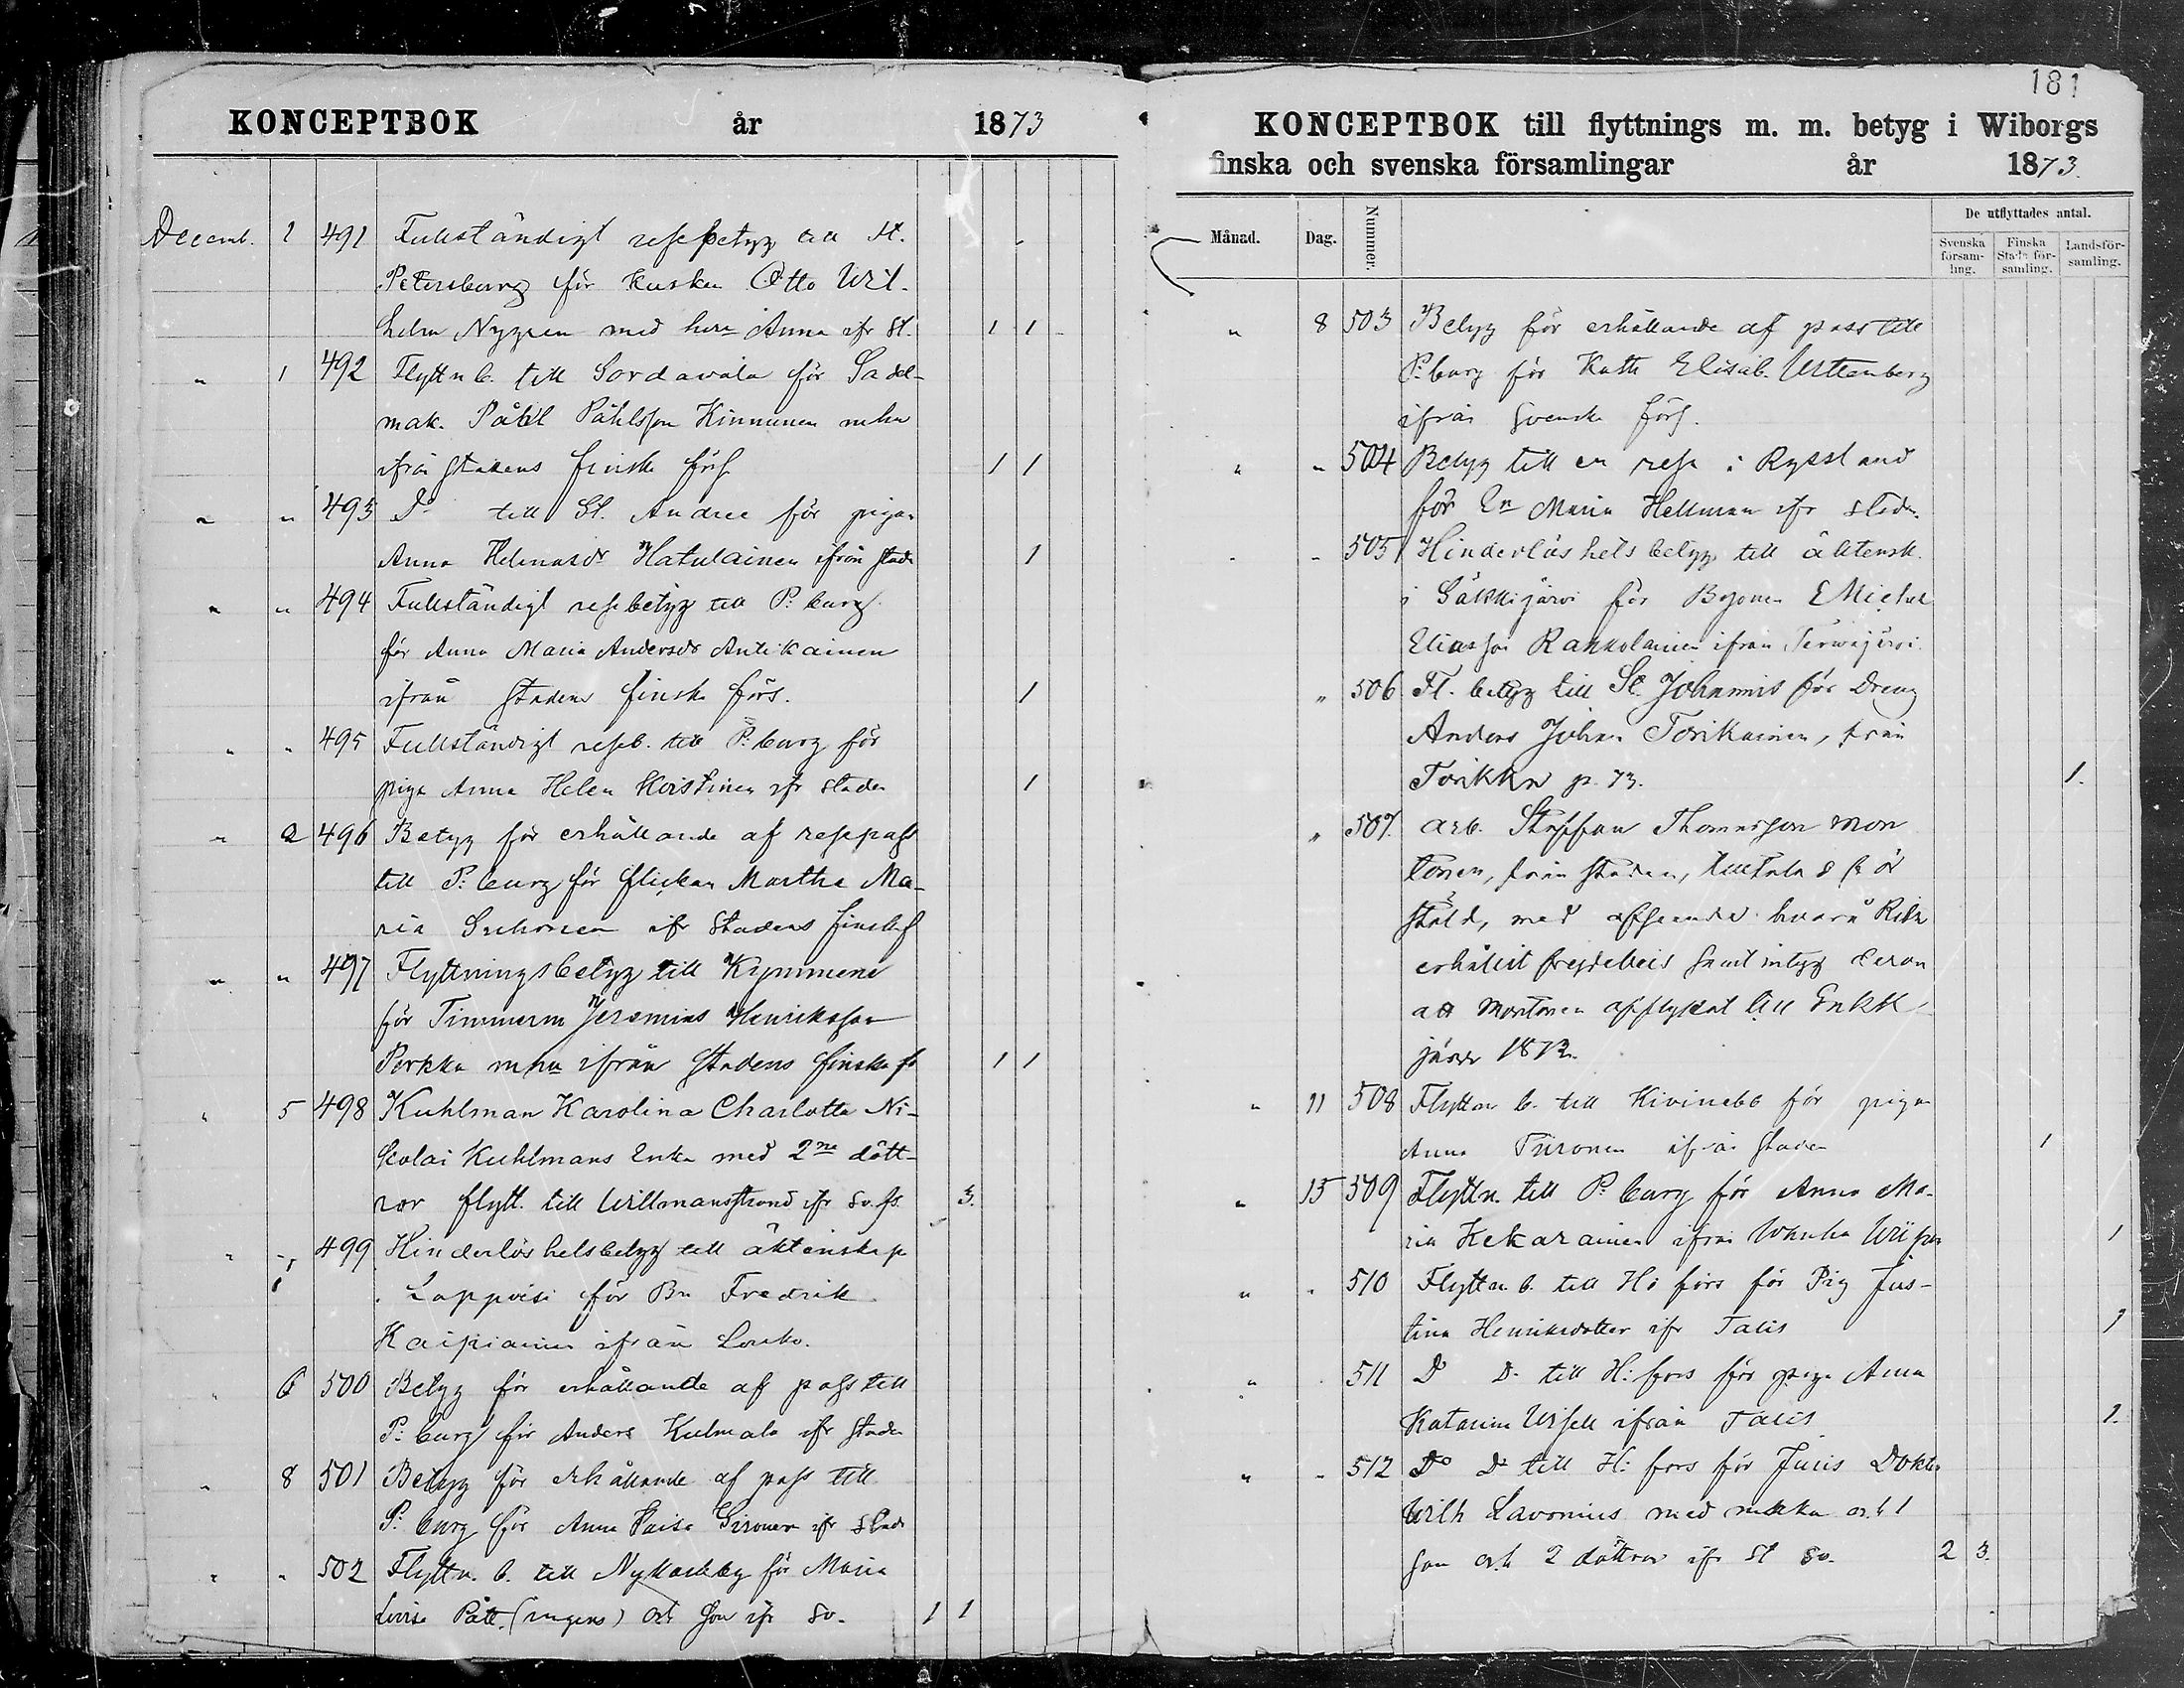 KONCEPTBOK år 1873
Decemb. 1 491 Fullständigt resebetyg till St.
Petersburg för Kusken Otto Wil-
helm Nygren med hu Anna ifr St. 1 1
" 1 492 Flyttn b. till Sordavala för Sadel-
mak. Påhl Påhlsson Kinnunen mhu
ifrån stadens finska förs 1 1
" " 493 Do till St. Andree för pigan
Anna Helenasdr Hatulainen ifrån stade 1
" " 494 Fullständigt resebetyg till P:burg
för Anna Maria Andersdr Antikainen
ifrån stadens finska förs. 1
" " 495 Fullständigt reseb. till P:burg för
piga Anna Helen Koistinen ifr staden 1
" 2 496 Betyg för erhållande af respass
till P:burg för flickan Martha Ma-
ria Suhonen ifr stadens finska f
" " 497 Flyttningsbetyg till Kymmene
för Timmerm Jeremias Henriksson
Perkka mhu ifrån stadens finska f 1 1
" 5 498 Kuhlman Karolina Charlotta Ni-
kolai Kuhlmans Enka med 2ne dött-
rar flytt. till Willmanstrand ifr sv. fs. 3.
" " 499 Hinderlöshetsbetyg till äktenskap
i Lappvesi för Bn Fredrik
Kaipiainen ifrån Louko.
" 6 500 Betyg för erhållande af pass till
P:burg för Anders Kulmala ifr staden
" 8 501 Betyg för erhållande af pass till
P:burg för Anna Kaisa Sironen ifr stade
" " 502 Flyttn. b. till Nykarleby för Maria
Lovisa Pått (ingens) och son ifr sv. 1 1
181
KONCEPTBOK till flyttnings m. m. betyg i Wiborgs
finska och svenska församlingar år 1873.
Månad. Dag. Nummer. De utflyttades antal.
Svenska försam-ling. Finska Stads för-samling. Landsför-samling.
" 8 503 Betyg för erhållande af pass till
P:burg för Kath Elisab. Uttenberg
ifrån svenska förs.
" " 504 Betyg till en resa i Ryssland
för En Maria Hellman ifr staden.
" " 505 Hinderlöshets betyg till äktensk.
i Säkkijärvi för Bsonen EMichel
Eliasson Rakkolainen ifrån Terwajärvi.
" 506 Fl. betyg till St. Johannis för Dreng
Anders Johan Torikainen, från
Torikka p. 73. 1.
" 507. arb. Staffan Thomasson Mon
tonen, från staden,
ståld, med
erhållit frejdebevis samt intyg derom
att Montonen afflyttat till
järvi 1872.
" 11 508 Flyttn b. till Kivinebb för pigan
Anna Piironen ifrån staden 1
" 15 509 Flyttn. till P:burg för Anna Ma-
ria Kekarainen ifrån Wanha Wiipuri 1
" " 510 Flyttn. b. till H:fors för Pig Jus-
tina Henriksdotter ifr Talis 1
" " 511 Do Do till H:fors för piga Anna
Katarina Wisell ifrån Talis 1.
" " 512 Do Do till H:fors för Juris Doktor
Wilh Lavonius med maka och 1
son och 2 döttrar ifr St sv. 2 3.